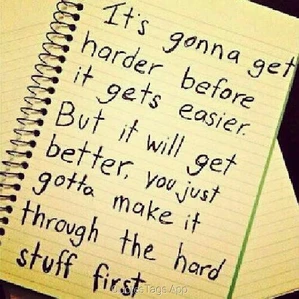 It's gonna get
harder before
it gets easier.
But it will get
better, you just
gotta make it
through the hard
stuff first
Quotes Tags App